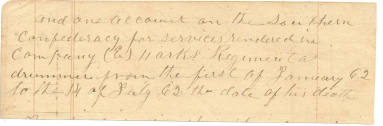 and one account on the Southern
Confederacy for services rendered in
Company (E) Marks Regiment a
drummer from the first of January 62
to the 14 of July 62 the date of his death